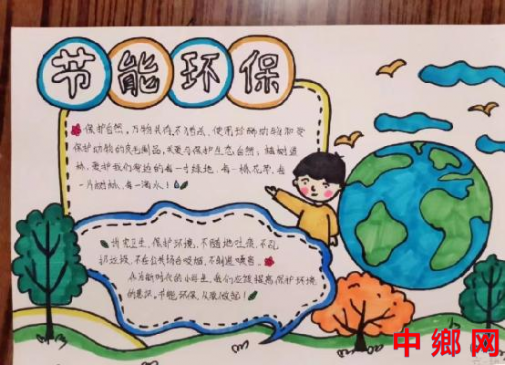 节能环保
保护自然,万物共存,不猎杀、使用珍稀动物和受
保护动物的皮毛制品,
保护生态自然;植树造
林,爱护我们身边的每一寸绿地、每一棵花草、每
一片树林、每一滴水!
讲究卫生、保护环境,不随地吐痰、不乱
扔垃圾、不在公共场合吸烟、不制造噪音。
新时代的小学生,我们应提高保护环境
的意识,节能环保,从我做起!
中鄉网